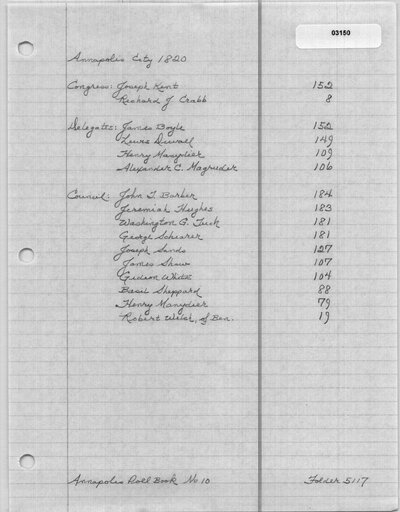 03150
Annapolis City 1820
Congress: Joseph Kent 152
Richard J. Crabb 8
Delegates: James Boyle 152
Lewis Duvall 149
Henry Maynadier 109
Alexander C. Magruder 106
Council: John T. Barber 184
Jeremiah Hughes 183
Washington G. Tuck 181
George Schwarer 181
Joseph Sands 127
James Shaw 107
Gideon White 104
Basil Sheppard 88
Henry Maynadier 79
Robert Welch, of Ben. 19
Annapolis Poll Book No 10 Folder 5117